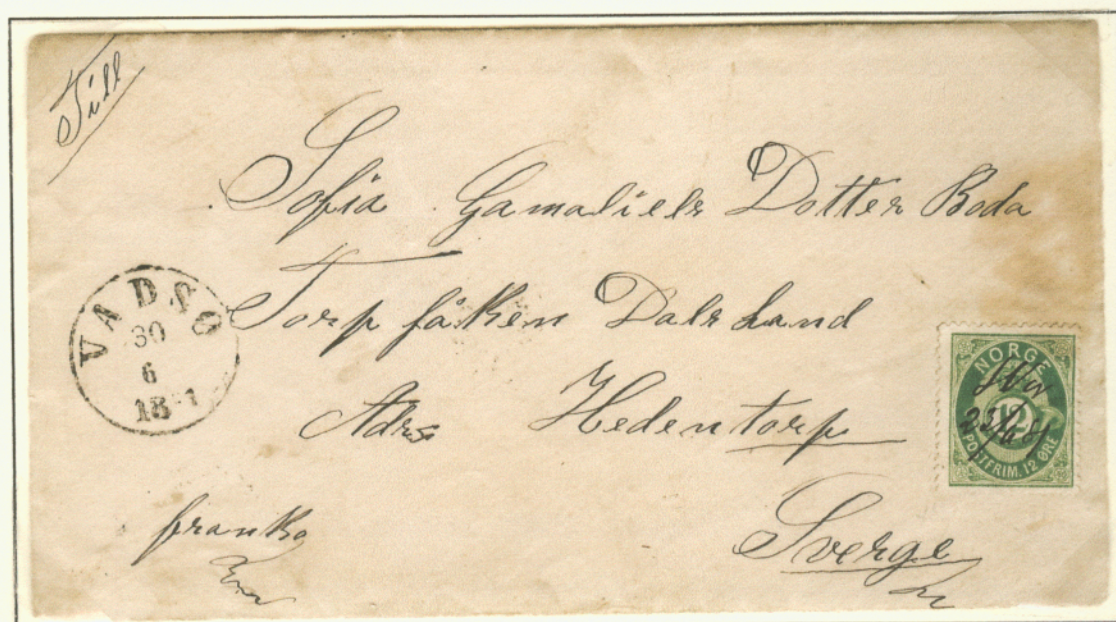 Till
Sofia Gamaliels Dotter Boda
Torp fåken Dals Land
Adrs Hedentorp
franko
Sverge
VADSØ
30
6
18 1
NORGE
12
23/6 81
POSTFRIM. 12 ØRE